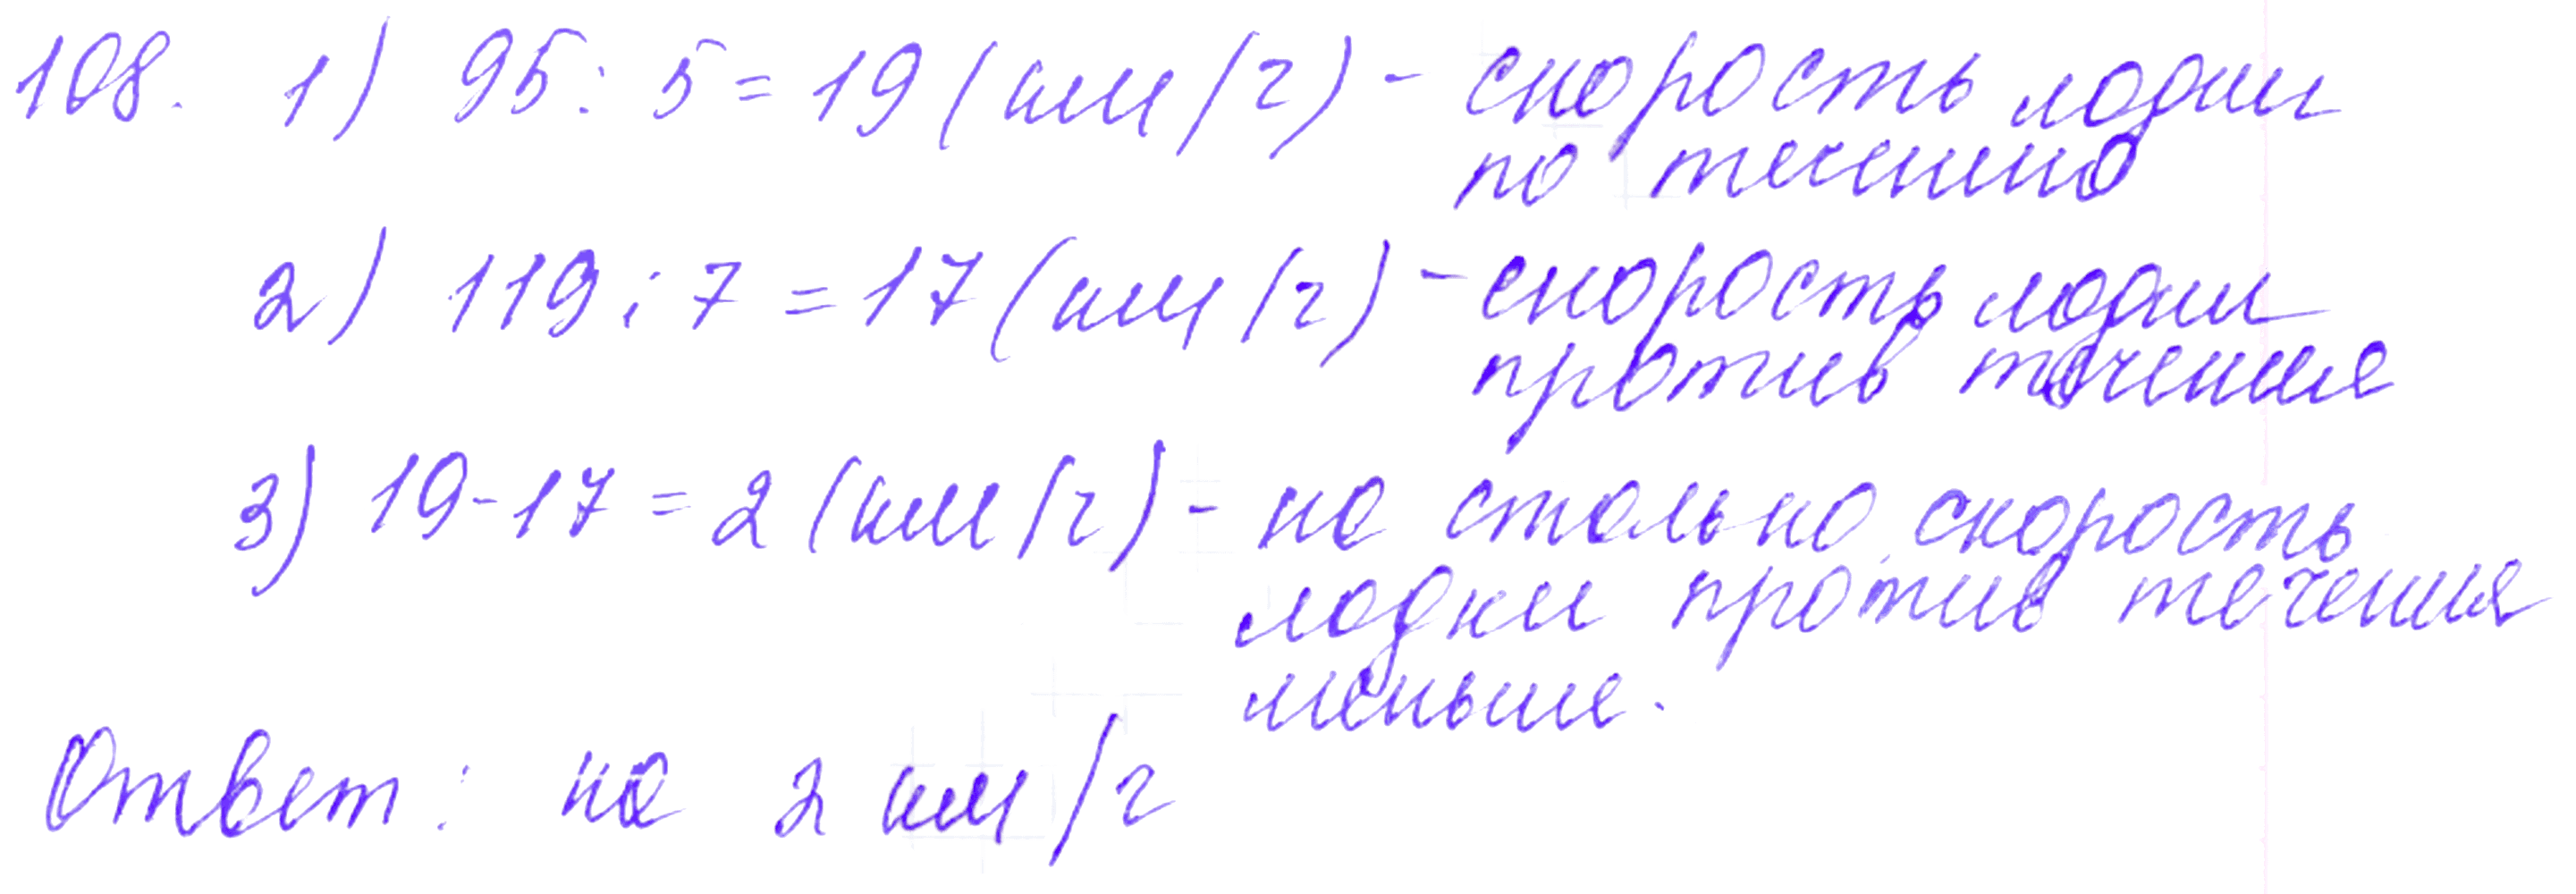 108. 1) 95 : 5 = 19 (км/ч) - скорость лодки
по течению
2) 119 : 7 = 17 (км/ч) - скорость лодки
против течения
3) 19 - 17 = 2 (км/ч) - на столько скорость
лодки против течения
меньше.
Ответ: на 2 км/ч